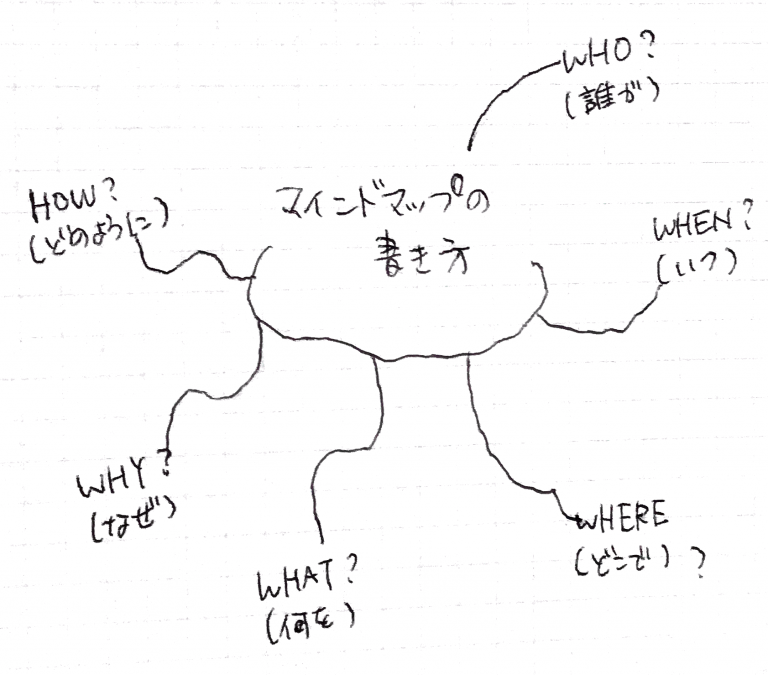 マインドマップの
書き方
WHO?
(誰が)
WHEN?
(いつ)
WHERE
(どこで)?
WHAT?
(何を)
WHY?
(なぜ)
HOW?
(どのように)